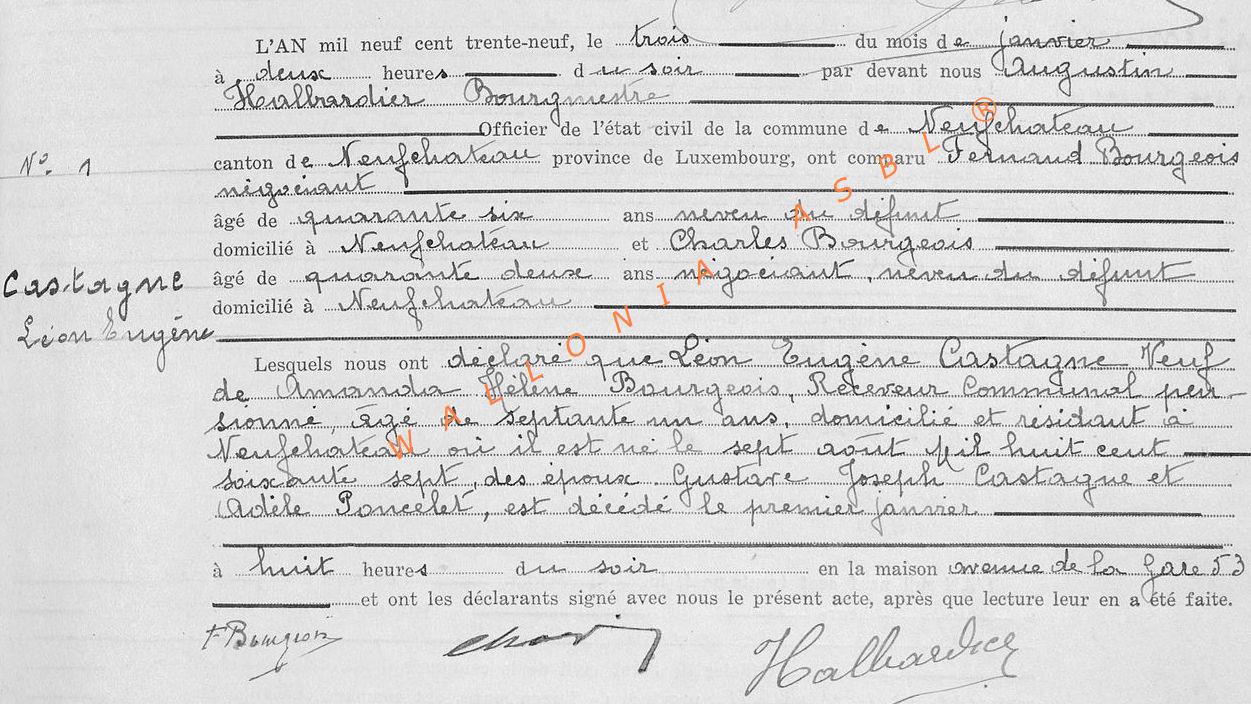 L'AN mil neuf cent trente-neuf, le trois du mois de janvier
à deux heures du soir par devant nous Augustin
Halbardier Bourgmestre
Officier de l'état civil de la commune de Neufchateau
N° 1
canton de Neufchateau province de Luxembourg, ont comparu Fernand Bourgeois
négociant
âgé de quarante six ans neveu du défunt
domicilié à Neufchateau et Charles Bourgeois
Castagne
âgé de quarante deux ans négociant, neveu du défunt
domicilié à Neufchateau
Léon Eugène
Lesquels nous ont déclaré que Léon Eugène Castagne Veuf
de Amanda Hélène Bourgeois, Receveur Communal pen-
sionné, âgé de septante un ans, domicilié et résidant à
Neufchateau où il est né le sept août Mil huit cent
soixante sept, des époux Gustave Joseph Castagne et
Adèle Poncelet, est décédé le premier janvier
à huit heures du soir en la maison avenue de la Gare 53
et ont les déclarants signé avec nous le présent acte, après que lecture leur en a été faite.
F Bourgeois
Halbardier
WALLONIA ASBL ®